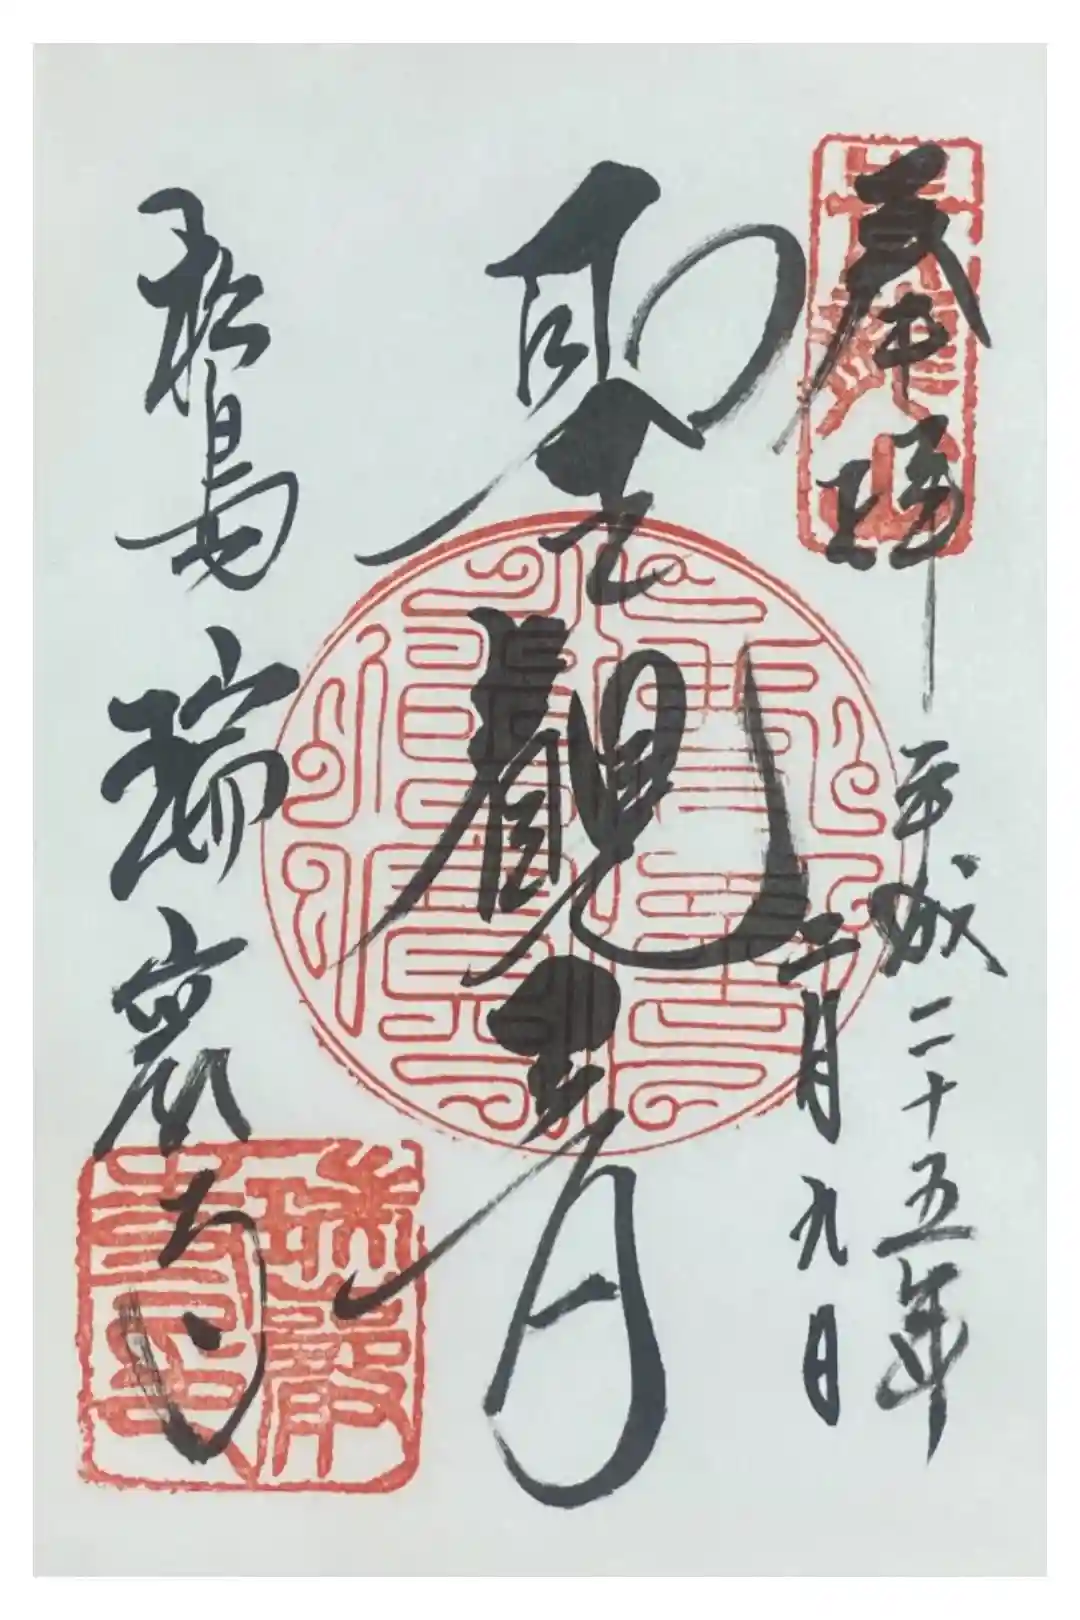 奉拝
平成二十五年
二月九日
聖観音
松島 瑞巌寺
瑞巌寺印